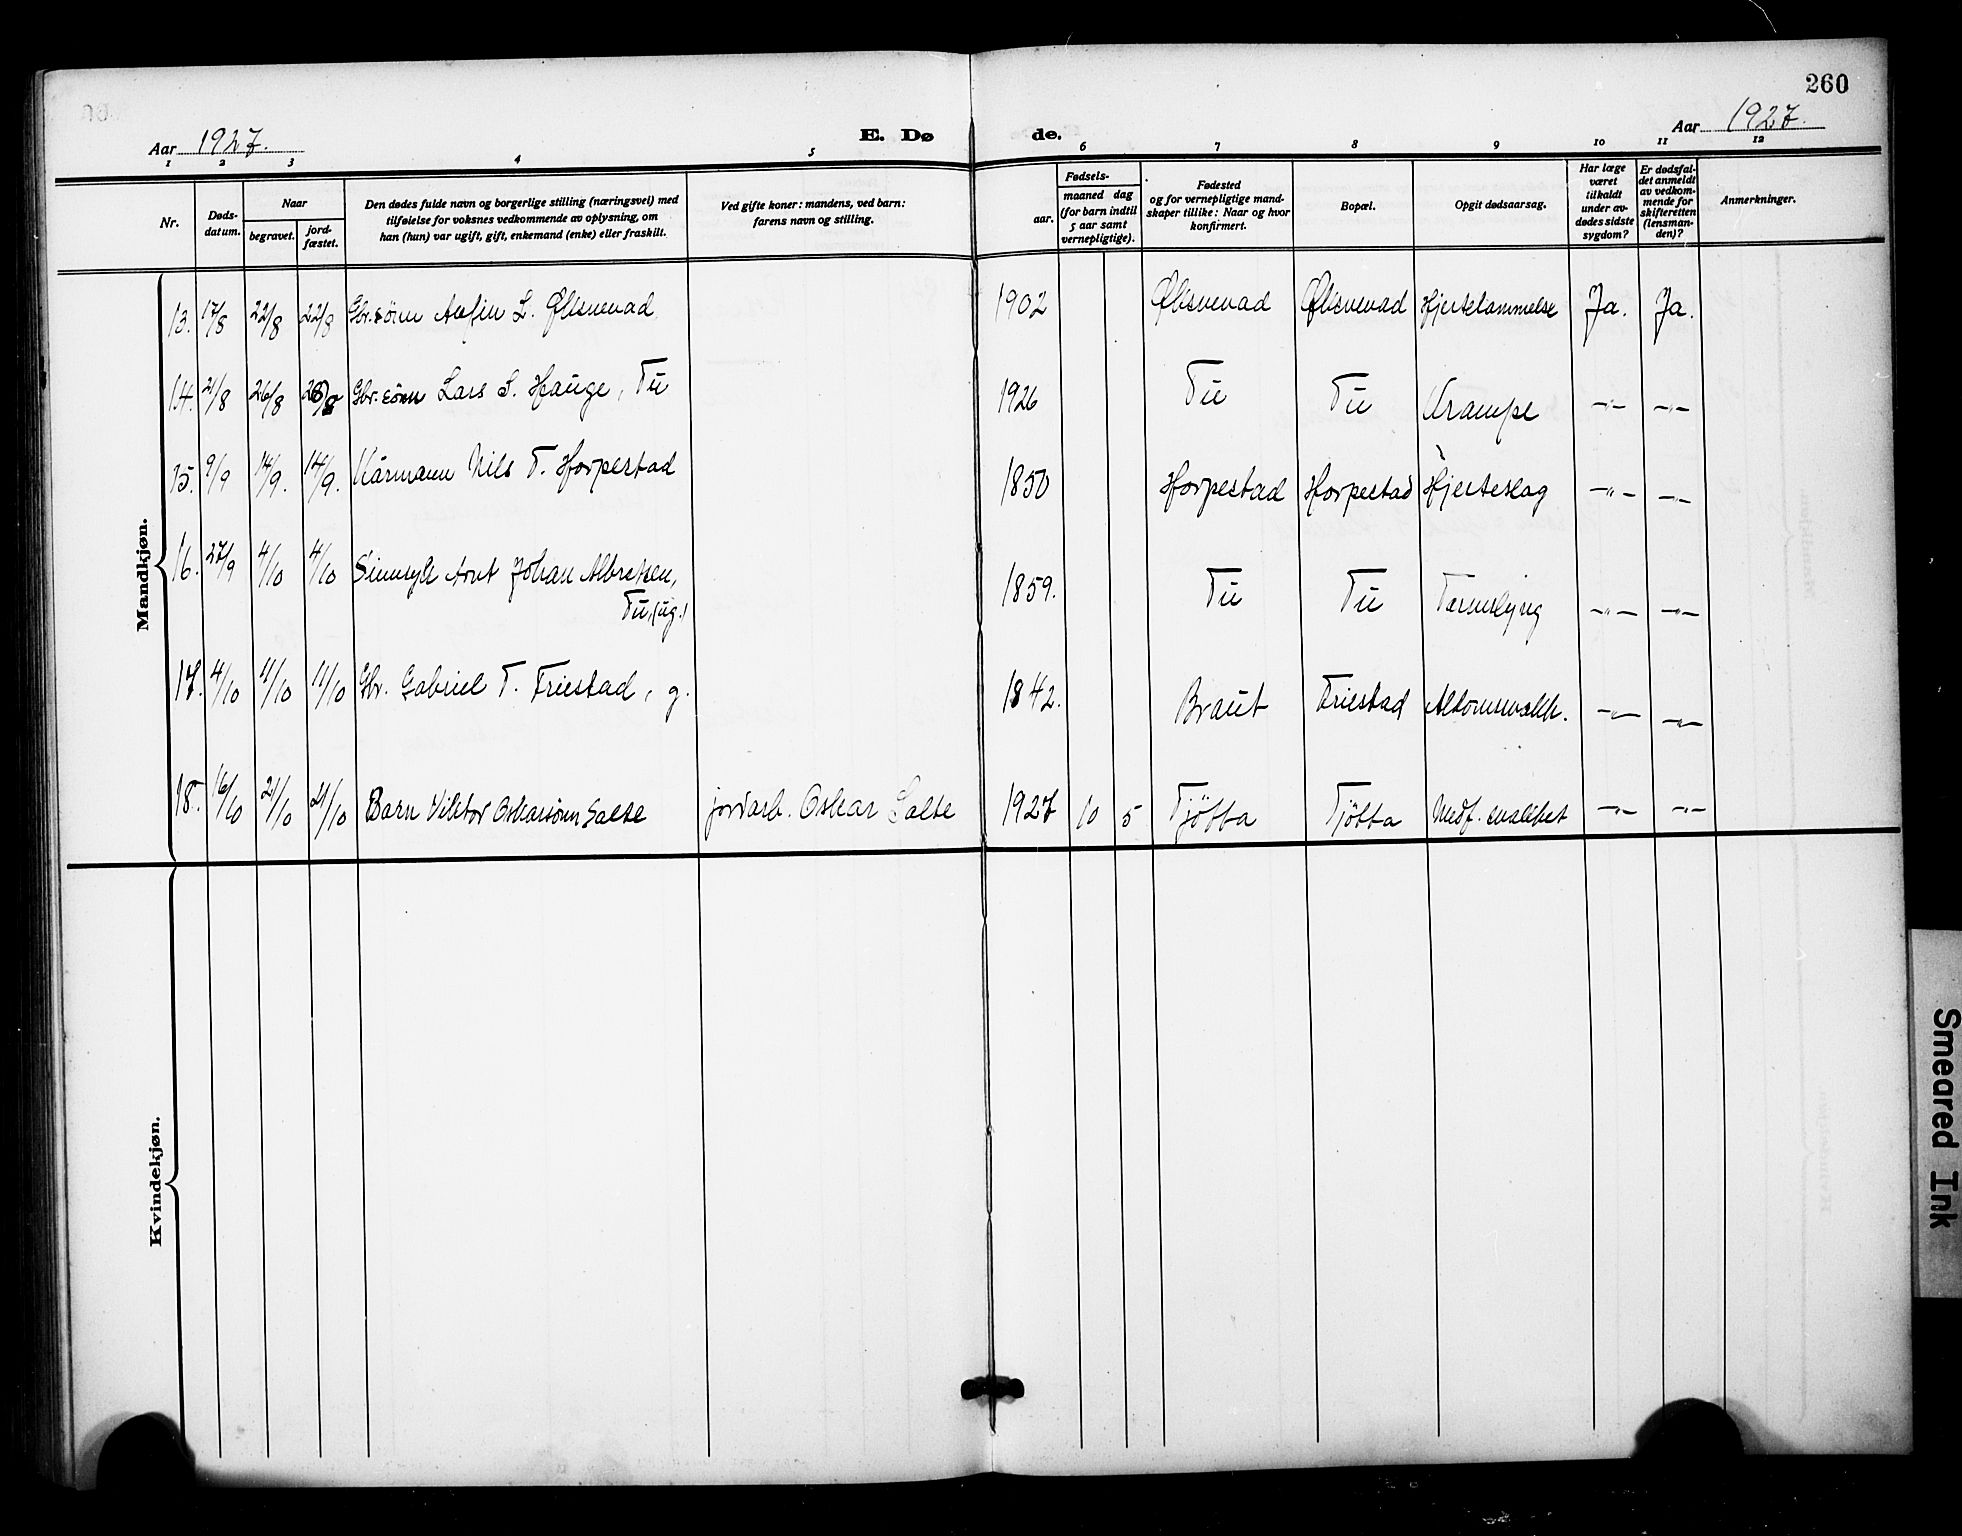 260
Aar 1927.
E. Dø
de.
Aar 1927.
1 2 3 4 5 6 7 8 9 10 11 12
Nr.
Døds-
datum.
Naar
begravet.
jord-
fæstet.
Den dødes fulde navn og borgerlige stilling (næringsvei) med
tilføielse for voksnes vedkommende av oplysning, om
han (hun) var ugift, gift, enkemand (enke) eller fraskilt.
Ved gifte koner: mandens, ved barn:
farens navn og stilling.
Fødsels-
aar.
maaned dag
(for barn indtil
5 aar samt
vernepligtige).
Fødested
og for vernepligtige mand-
skaper tillike: Naar og hvor
konfirmert.
Bopæl.
Opgit dødsaarsag.
Har læge
været
tilkaldt
under av-
dødes sidste
sygdom?
Er dødsfal-
det anmeldt
av vedkom-
mende for
skifteretten
(lensman-
den)?
Anmerkninger.
Mandkjøn.
13. 17/8 22/8 22/8 Gbr.sönn L. Ølisnevad 1902 Ølisnevad Ølisnevad Hjertelammelse Ja. Ja.
14. 21/8 26/8 26/8 Gbr.sönn Lars S. Hauge, Tu 1926 Tu Tu Krampe —"— —"—
15. 9/9 14/9. 14/9. Kårmann Nils T. Horpestad 1850 Horpestad Horpestad Hjerteslag —"— —"—
16. 27/9 4/10 4/10 Sinnsyk Arnt Johan Albretsen,
Tu, (ug.) 1859. Tu Tu Tarmslyng —"— —"—
17. 4/10 11/10 11/10 Gbr. Gabriel T. Friestad, g. 1842. Braut Friestad —"— —"—
18. 16/10 21/10 21/10 Barn Viktor Oskarsönn Salte jordarb. Oskar Salte 1927 10 5 Tjötta Tjötta Medf. svakhet —"— —"—
Kvindekjøn.
Smeared Ink